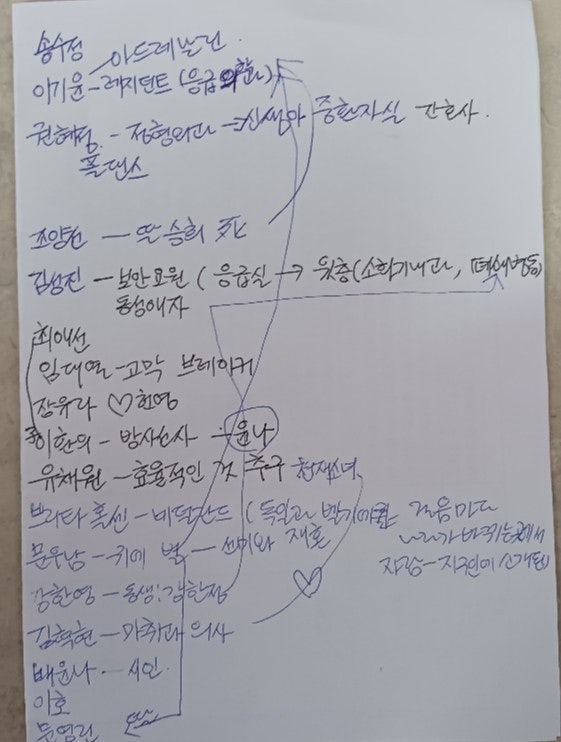 송수정 아드레날린
이기윤 - 레지던트 (응급의학과)
권혜정 - 정형외과 → 신생아 중환자실 간호사.
폴댄스
조양선 - 딸 승희 死
김성진 - 보안요원 ( 응급실 → 윗층(소화기내과, 폐쇄병동)
동성애자
최애선
임대열 - 고막 브레이커
장유라 ♡ 헌영
이환의 - 방사선사 - 윤나
유채원 - 효율적인 것 추구 천재소녀
브리타 훈센 - (독일과 벨기에 걸음마다
나라가 바뀌는 곳에서
문우남 - 귀에 벌 - 선미와 재혼
자람 - 지구인에 소개
강한영 - 동생: 강한정
♡
김혁현 - 마취과 의사
배윤나 - 시인.
이호
문영린 딸